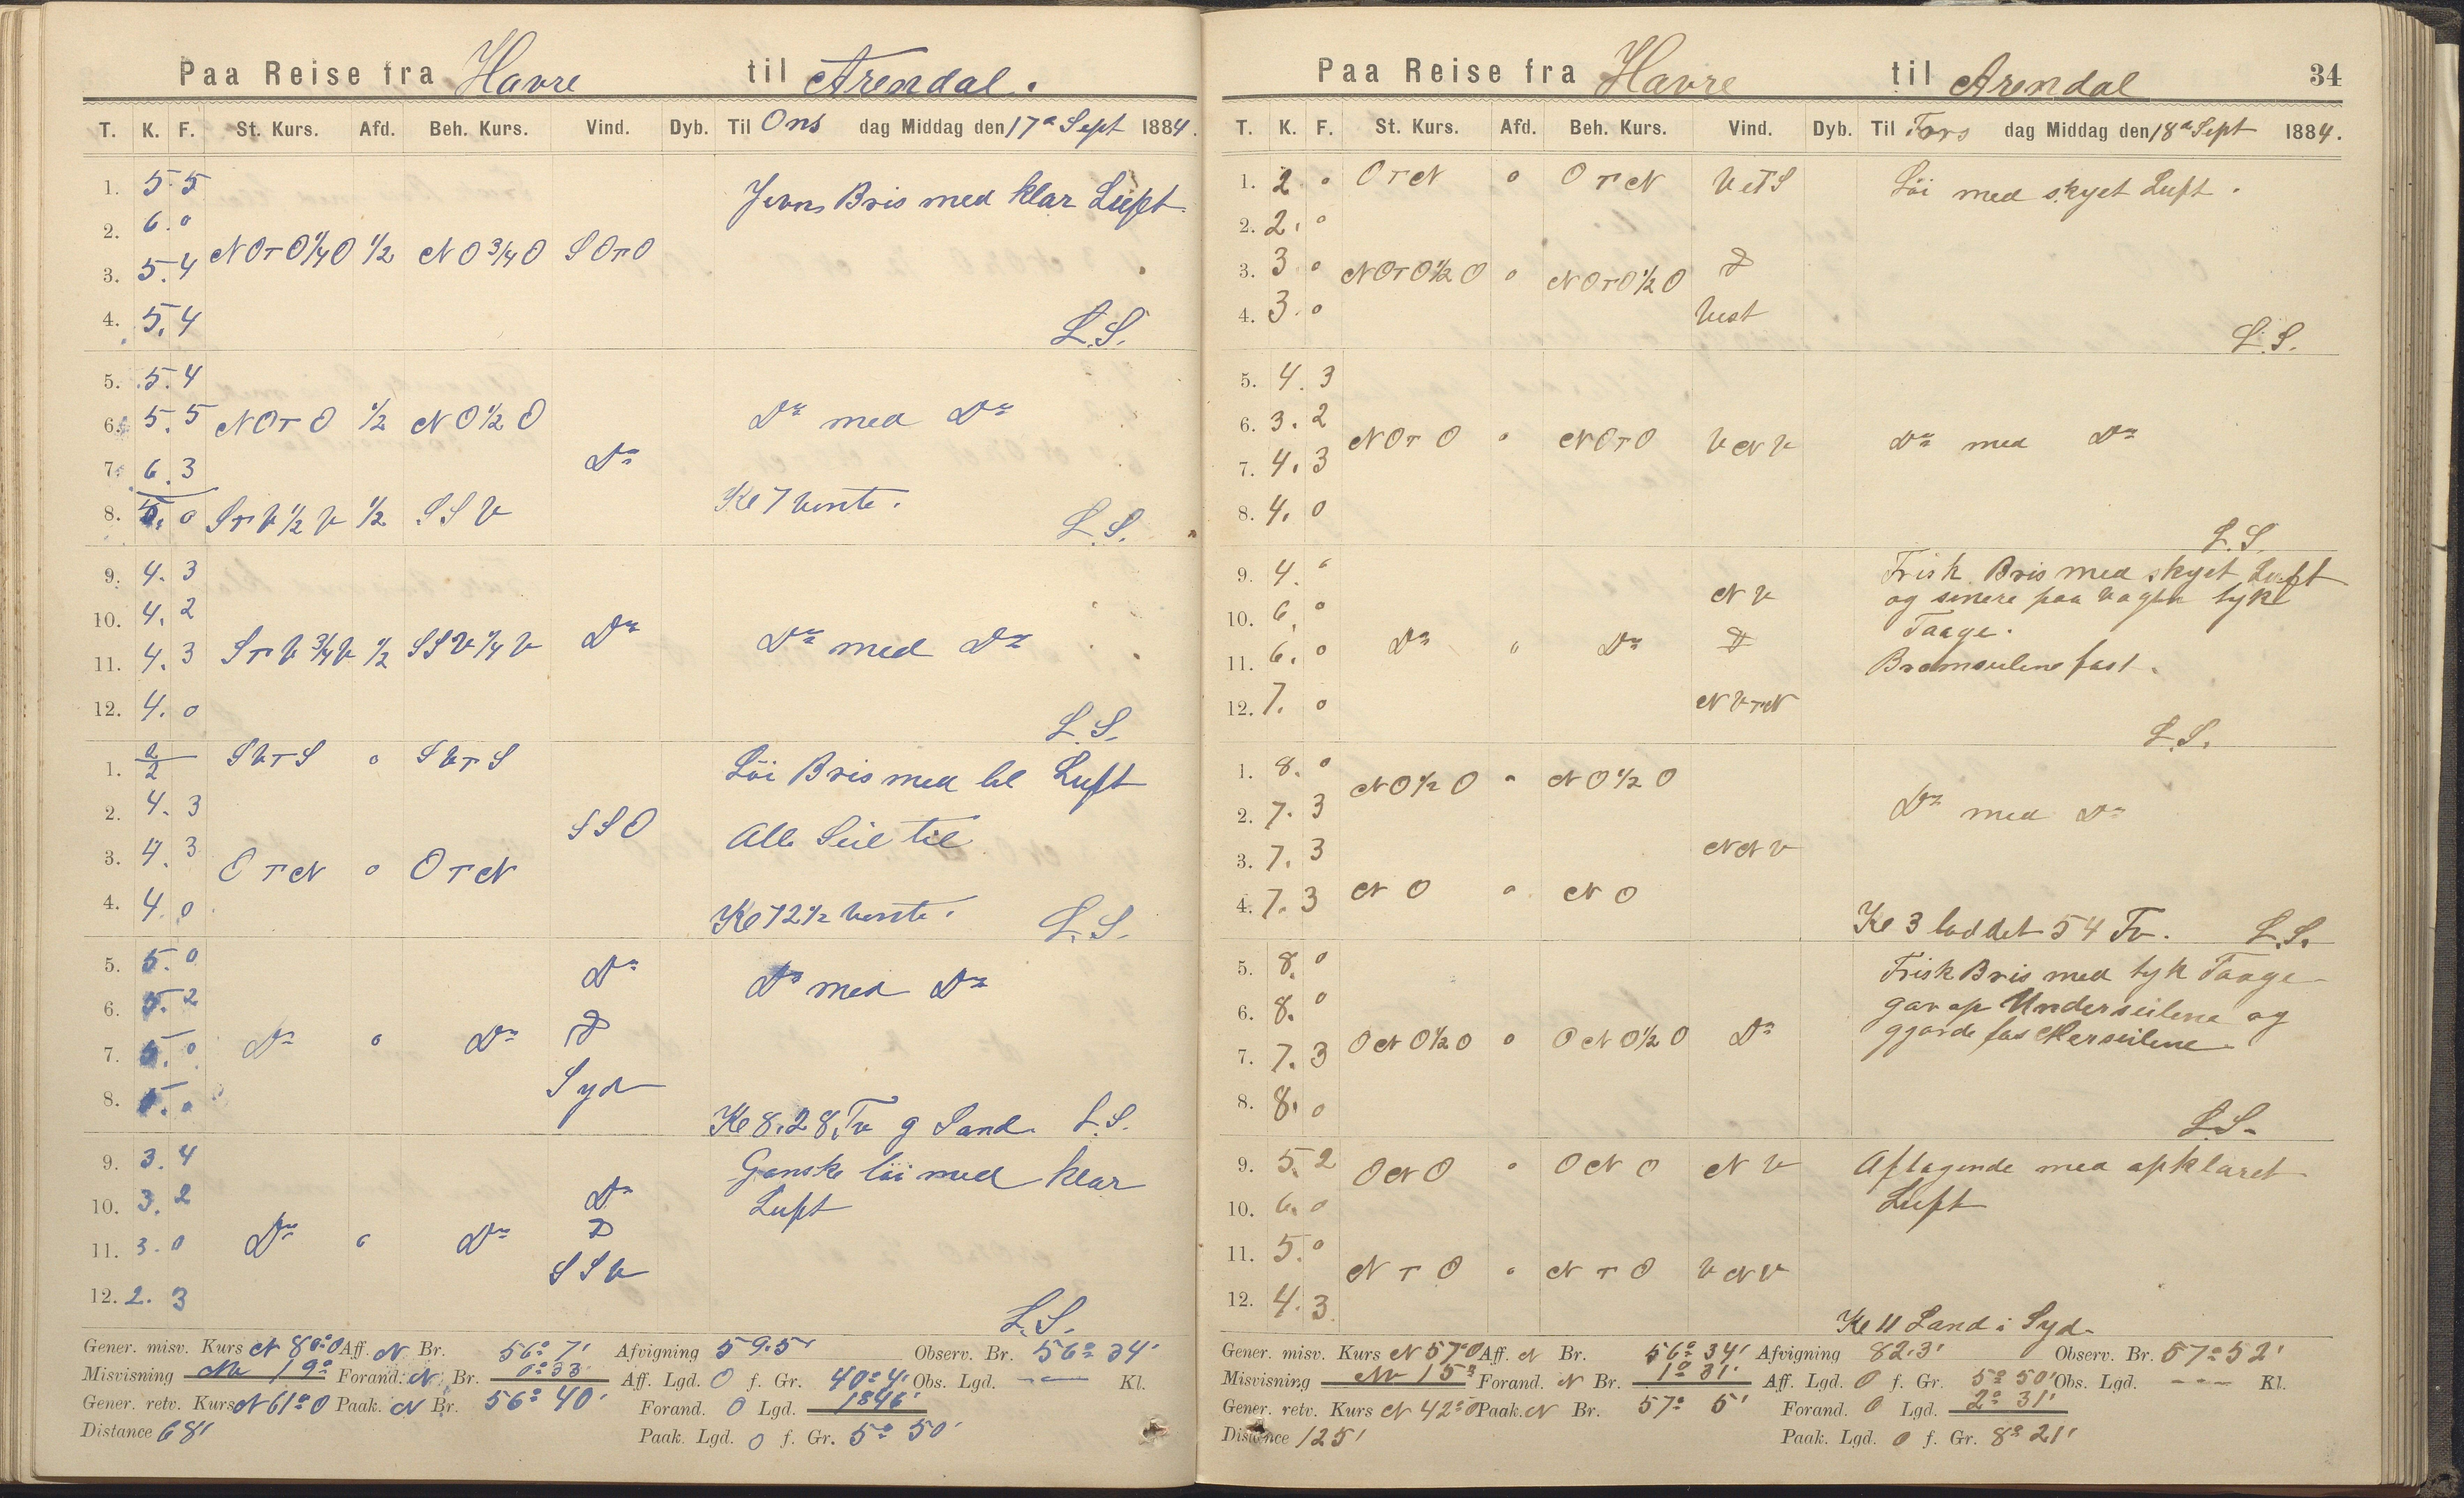 Paa Reise fra Havre til Arendal.
T. K. F. St. Kurs. Afd. Beh. Kurs. Vind. Dyb. Til Ons dag Middag den 17de Sept 1884.
1. 5. 5
Jevn Bris med klar Luft.
2. 6. 0
NOTO 1/4 O 1/2 NO 3/4 O SOTO
3. 5. 4
4. 5. 4
L.S.
5. 5. 4
6. 5. 5 NOTO 1/2 NO 1/2 O
Do med Do
7. 6. 3
Do
8. 5. 0 STV 1/2 V 1/2 SSV
Kl 7 vendte.
L.S.
9. 4. 3
10. 4. 2
11. 4. 3 STV 3/4 V 1/2 SSV 1/4 V Do
Do med Do
12. 4. 0
L.S.
1. 2 SVTS 0 SVTS
Löi Bris med kl Luft
2. 4. 3
SSO
Alle Seil til
3. 4. 3
OTN 0 OTN
4. 4. 0
Kl 12 1/2 vendte.
L.S.
5. 5. 0
Do
Do med Do
6. 5. 2
7. 5. 0 Do 0 Do
Syd
8. 5. 0
Kl 8. 28 Fv g Sand. L.S.
9. 3. 4
Ganske löi med klar
10. 3. 2
Do
Luft
11. 3. 0 Do 0 Do
SSV
12. 2. 3
L.S.
Gener. misv. Kurs N 80° O Aff. N Br. 56° 7' Afvigning 59.5 Observ. Br. 56° 34'
Misvisning NV 19° Forand. N Br. 0° 33 Aff. Lgd. O f. Gr. 4° 4' Obs. Lgd. --- Kl.
Gener. retv. Kurs N 61° O Paak. N Br. 56° 40' Forand. O Lgd. 1° 46'
Distance 68' Paak. Lgd. O f. Gr. 5° 50'
Paa Reise fra Havre til Arendal 34
T. K. F. St. Kurs. Afd. Beh. Kurs. Vind. Dyb. Til Tors dag Middag den 18de Sept 1884.
1. 2. 0 OTN 0 OTN VTS
Löi med skyet Luft.
2. 2. 0
3. 3. 0 NOTO 1/2 O 0 NOTO 1/2 O
4. 3. 0
Vest
L.S.
5. 4. 3
6. 3. 2
7. 4. 3 NOTO 0 NOTO VNV
Do med Do
8. 4. 0
L.S.
9. 4. 0
Frisk Bris med skyet Luft
10. 6. 0
NV
og senere paa vagten tyk
Taage.
11. 6. 0 Do " Do
Bramseilene fast.
12. 7. 0
NVTN
L.S.
1. 8. 0
NO 1/2 O 0 NO 1/2 O
2. 7. 3
Do med Do
3. 7. 3
NNV
4. 7. 3 NO 0 NO
Kl 3 loddet 54 Fv. L.S.
5. 8. 0
Frisk Bris med tyk Taage
6. 8. 0
gav op Underseilene og
7. 7. 3 ONO 1/2 O 0 ONO 1/2 O Do
gjorde fast Merseilene.
8. 8. 0
L.S.
9. 5. 2 ONO 0 ONO NV
Aftagende med opklaret
10. 6. 0
Luft
11. 5. 0
NTO 0 NTO VNV
12. 4. 3
Kl 11 Land i Syd.
Gener. misv. Kurs N 57° O Aff. N Br. 56° 34' Afvigning 82.3' Observ. Br. 57° 52'
Misvisning NV 15° Forand. N Br. 1° 31' Aff. Lgd. O f. Gr. 5° 50' Obs. Lgd. --- Kl.
Gener. retv. Kurs N 42° O Paak. N Br. 57° 5' Forand. O Lgd. 2° 31'
Distance 125' Paak. Lgd. O f. Gr. 8° 21'